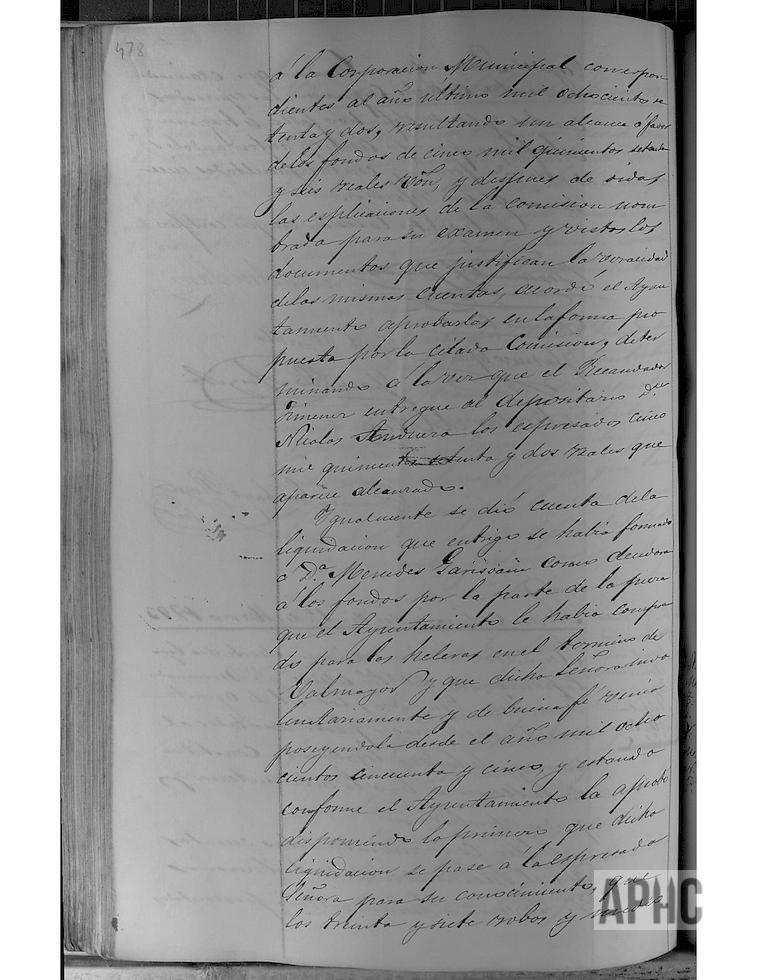 478
á la Corporacion Municipal correspon
dientes al año último mil ochocientos se
tenta y dos, resultando un alcance á favor
de los fondos de cinco mil quinientos setenta
y seis reales Vōn, y despues de oidas
las esplicaciones de la comision nom
brada para su examen y vistos los
documentos que justifican la veracidad
de las mismas cuentas, acordó el Ayun
tamiento aprobarlas en la forma pro
puesta por la citada Comision, deter
minando á la vez que el Recaudador
Jimenez entregue al depositario Dⁿ
Nicolas los espresados cinco
mil quinientos setenta y dos reales que
aparece alcanzado.
Igualmente se dió cuenta de la
liquidacion que entrigo se habia formado
á Dª Mercedes como deudora
á los fondos por la parte de la pieza
que el Ayuntamiento le habia compra
do para las heleras en el termino de
Valmayor y que dicha Señora invo
luntariamente y de buena fé venia
poseyendola desde el año mil ocho
cientos cincuenta y cinco, y estando
conforme el Ayuntamiento la aprobó
disponiendo lo primero que dicha
liquidacion se pase á la espresada
Señora para su conocimiento, que
los treinta y siete robos y
APHC